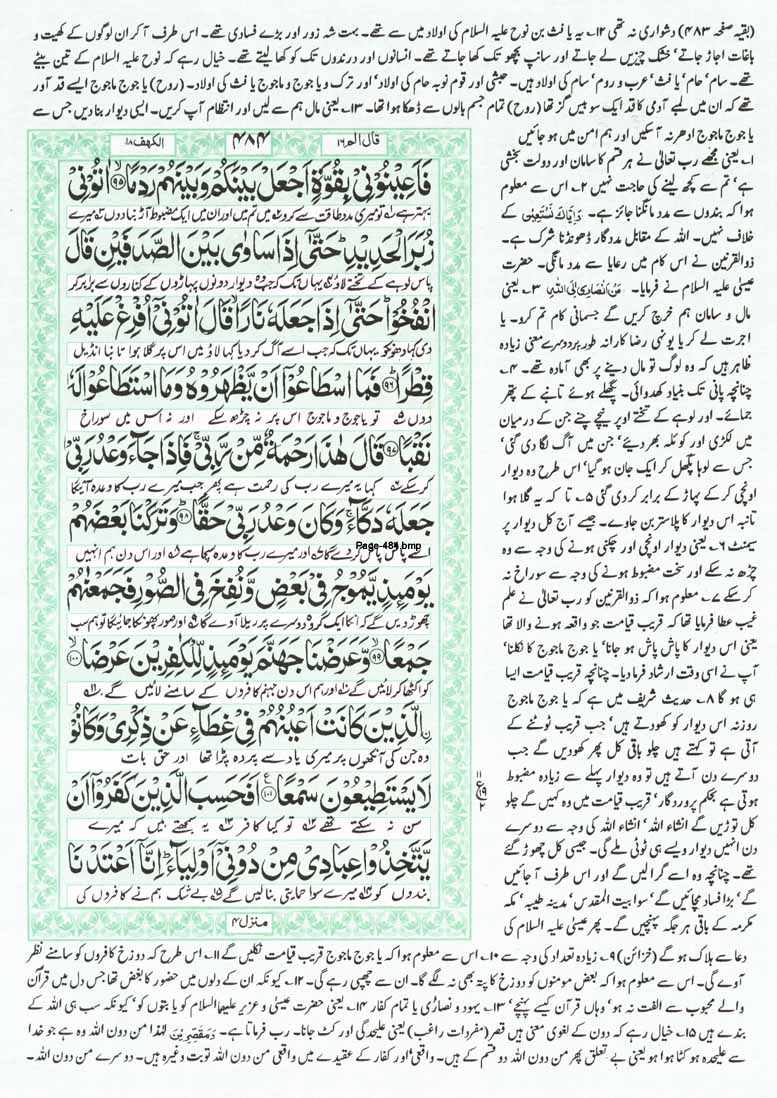 (بقیہ صفحہ ۴۸۳) دشواری نہ تھی ۱۲۔ یہ یافث بن نوح علیہ السلام کی اولاد میں سے تھے۔ بہت شہ زور اور بڑے فسادی تھے۔ اس طرف آ کر ان لوگوں کے کھیت و
باغات اجاڑ جاتے' خشک چیزیں لے جاتے اور سانپ بچھو تک کھا جاتے تھے۔ انسانوں اور درندوں تک کو کھا لیتے تھے۔ خیال رہے کہ نوح علیہ السلام کے تین بیٹے
تھے۔ سام' حام' یافث' عرب و روم' سام کی اولاد ہیں۔ حبشی اور قوم نوبہ حام کی اولاد' اور ترک و یاجوج و ماجوج یافث کی اولاد۔ (روح) یاجوج ماجوج ایسے قد آور
تھے کہ ان میں لمبے آدمی کا قد ایک سو بیس گز تھا (روح) تمام جسم بالوں سے ڈھکا ہوا تھا۔ ۱۳۔ یعنی مال ہم سے لیں اور انتظام آپ کریں۔ ایسی دیوار بنا دیں جس سے
یاجوج ماجوج ادھر نہ آ سکیں اور ہم امن میں ہو جائیں
۱۔ یعنی مجھے رب تعالیٰ نے ہر قسم کا سامان اور دولت بخشی
ہے' تم سے کچھ لینے کی حاجت نہیں ۲۔ اس سے معلوم
ہوا کہ بندوں سے مدد مانگنا جائز ہے۔ وَاِیَّاکَ نَسْتَعِیْنُ کے
خلاف نہیں۔ اللہ کے مقابل مددگار ڈھونڈنا شرک ہے۔
ذوالقرنین نے اس کام میں رعایا سے مدد مانگی۔ حضرت
عیسیٰ علیہ السلام نے فرمایا۔ مَنْ اَنْصَارِیْ اِلَی اللہِ ۳۔ یعنی
مال و سامان ہم خرچ کریں گے جسمانی کام تم کرو۔ یا
اجرت لے کر یا یونہی رضا کارانہ طور پر دوسرے معنی زیادہ
ظاہر ہیں کہ وہ لوگ تو مال دینے پر بھی آمادہ تھے۔ ۴۔
چنانچہ پانی تک بنیاد کھدوائی۔ پگھلے ہوئے تانبے کے پتھر
جمائے۔ اور لوہے کے تختے اوپر نیچے چنے جن کے درمیان
میں لکڑی اور کوئلہ بھر دیئے' جن میں آگ لگا دی گئی'
جس سے لوہا پگھل کر ایک جان ہو گیا' اس طرح وہ دیوار
اونچی کر کے پہاڑ کے برابر کر دی گئی ۵۔ تاکہ یہ گلا ہوا
تانبہ اس دیوار کا پلاستر بن جاوے۔ جیسے آج کل دیوار پر
سیمنٹ ۶۔ یعنی دیوار اونچی اور چکنی ہونے کی وجہ سے وہ
چڑھ نہ سکے اور سخت مضبوط ہونے کی وجہ سے سوراخ نہ
کر سکے ۷۔ معلوم ہوا کہ ذوالقرنین کو رب تعالیٰ نے علم
غیب عطا فرمایا تھا کہ قریب قیامت جو واقعہ ہونے والا تھا
یعنی اس دیوار کا پاش پاش ہو جانا' یاجوج ماجوج کا نکلنا'
آپ نے اسی وقت ارشاد فرما دیا۔ چنانچہ قریب قیامت ایسا
ہی ہو گا ۸۔ حدیث شریف میں ہے کہ یاجوج ماجوج
روزانہ اس دیوار کو کھودتے ہیں' جب قریب ٹوٹنے کے
آتی ہے تو کہتے ہیں چلو باقی کل پھر کھودیں گے جب
دوسرے دن آتے ہیں تو وہ دیوار پہلے سے زیادہ مضبوط
ہوتی ہے بحکم پروردگار' قریب قیامت میں وہ کہیں گے چلو
کل توڑیں گے انشاء اللہ' انشاء اللہ کی وجہ سے دوسرے
دن انہیں دیوار ویسی ہی ٹوٹی ملے گی۔ جیسی کل چھوڑ گئے
تھے۔ چنانچہ وہ اسے گرا لیں گے اور اس طرف آ جائیں
گے' بڑا فساد مچائیں گے' سوا بیت المقدس' مدینہ طیبہ' مکہ
مکرمہ کے باقی ہر جگہ پہنچیں گے۔ پھر عیسیٰ علیہ السلام کی
قال الم ۱۶
۴۸۴
الکھف ۱۸
فَاَعِیْنُوْنِیْ بِقُوَّۃٍ اَجْعَلْ بَیْنَکُمْ وَبَیْنَہُمْ رَدْمًا ﴿۹۵﴾ اٰتُوْنِیْ
بہتر ہے تو میری مدد طاقت سے کرو میں تم میں اور ان میں ایک مضبوط آڑ بنا دوں میرے
زُبَرَ الْحَدِیْدِ حَتّٰی اِذَا سَاوٰی بَیْنَ الصَّدَفَیْنِ قَالَ
پاس لوہے کے تختے لاؤ یہاں تک کہ جب وہ دیوار دونوں پہاڑوں کے کناروں سے برابر کر
انْفُخُوْا حَتّٰی اِذَا جَعَلَہٗ نَارًا قَالَ اٰتُوْنِیْ اُفْرِغْ عَلَیْہِ
دی کہا دھونکو یہاں تک کہ جب اسے آگ کر دیا کہا لاؤ میں اس پر گلا ہوا تانبا انڈیل
قِطْرًا ﴿۹۶﴾ فَمَا اسْطَاعُوْا اَنْ یَّظْہَرُوْہُ وَمَا اسْتَطَاعُوْا لَہٗ
دوں تو یاجوج و ماجوج اس پر نہ چڑھ سکے اور نہ اس میں سوراخ
نَقْبًا ﴿۹۷﴾ قَالَ ہٰذَا رَحْمَۃٌ مِّنْ رَّبِّیْ فَاِذَا جَآءَ وَعْدُ رَبِّیْ
کر سکے کہا یہ میرے رب کی رحمت ہے پھر جب میرے رب کا وعدہ آئے گا
جَعَلَہٗ دَکَّآءَ وَکَانَ وَعْدُ رَبِّیْ حَقًّا ﴿۹۸﴾ وَتَرَکْنَا بَعْضَہُمْ
Page-484.bmp
اسے پاش پاش کر دے گا اور میرے رب کا وعدہ سچا ہے اور اس دن ہم انہیں
یَوْمَئِذٍ یَّمُوْجُ فِیْ بَعْضٍ وَّنُفِخَ فِی الصُّوْرِ فَجَمَعْنٰہُمْ
چھوڑ دیں گے کہ ان کا ایک گروہ دوسرے پر ریلا آوے گا اور صور پھونکا جائیگا تو ہم سب
جَمْعًا ﴿۹۹﴾ وَّعَرَضْنَا جَہَنَّمَ یَوْمَئِذٍ لِّلْکٰفِرِیْنَ عَرْضًا ﴿۱۰۰﴾
کو اکٹھا کر لائیں گے اور ہم اس دن جہنم کافروں کے سامنے لائیں گے
الَّذِیْنَ کَانَتْ اَعْیُنُہُمْ فِیْ غِطَآءٍ عَنْ ذِکْرِیْ وَکَانُوْا
وہ جن کی آنکھوں پر میری یاد سے پردہ پڑا تھا اور حق بات
لَا یَسْتَطِیْعُوْنَ سَمْعًا ﴿۱۰۱﴾ اَفَحَسِبَ الَّذِیْنَ کَفَرُوْۤا اَنْ
سن نہ سکتے تھے تو کیا کافر یہ سمجھتے ہیں کہ میرے
یَّتَّخِذُوْا عِبَادِیْ مِنْ دُوْنِیْۤ اَوْلِیَآءَ اِنَّاۤ اَعْتَدْنَا
بندوں کو میرے سوا حمایتی بنا لیں گے بے شک ہم نے کافروں کی
منزل ۴
دعا سے ہلاک ہو گے (خزائن) ۹۔ زیادہ تعداد کی وجہ سے ۱۰۔ اس سے معلوم ہوا کہ یاجوج ماجوج قریب قیامت نکلیں گے ۱۱۔ اس طرح کہ دوزخ کافروں کو سامنے نظر
آوے گی۔ اس سے معلوم ہوا کہ بعض مومنوں کو دوزخ کا پتہ بھی نہ لگے گا۔ ان سے چھپی رہے گی۔ ۱۲۔ کیونکہ ان کے دلوں میں حضور کا بغض تھا جس دل میں قرآن
والے محبوب سے الفت نہ ہو' وہاں قرآن کیسے پہنچے' ۱۳۔ یہود و نصاریٰ یا تمام کفار ۱۴۔ یعنی حضرت عیسیٰ و عزیر علیہما السلام کو یا بتوں کو' کیونکہ سب ہی اللہ کے
بندے ہیں ۱۵۔ خیال رہے کہ دون کے لغوی معنی ہیں قصر (مفردات راغب) یعنی علیحدگی اور کٹ جانا۔ رب فرماتا ہے۔ وَمُقَصِّرِیْنَ لہٰذا من دون اللہ وہ ہے جو خدا
سے علیحدہ ہو کٹا ہوا ہو یعنی بے تعلق پھر من دون اللہ دو قسم کے ہیں۔ واقعی' اور کفار کے عقیدے میں واقعی من دون اللہ تو بت وغیرہ ہیں۔ دوسرے من دون اللہ۔